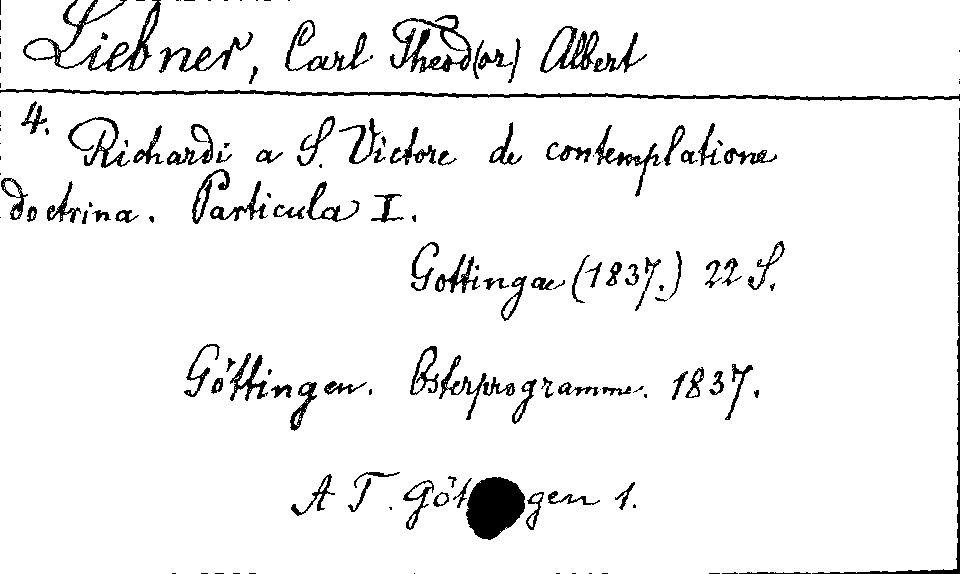 Liebner, Carl Theod(or) Albert
4.
Richardi a S. Victore de contemplatione
doctrina. Particula I.
Gottingae (1837.) 22 S.
Göttingen. Osterprogramme. 1837.
A T. Göttingen 1.